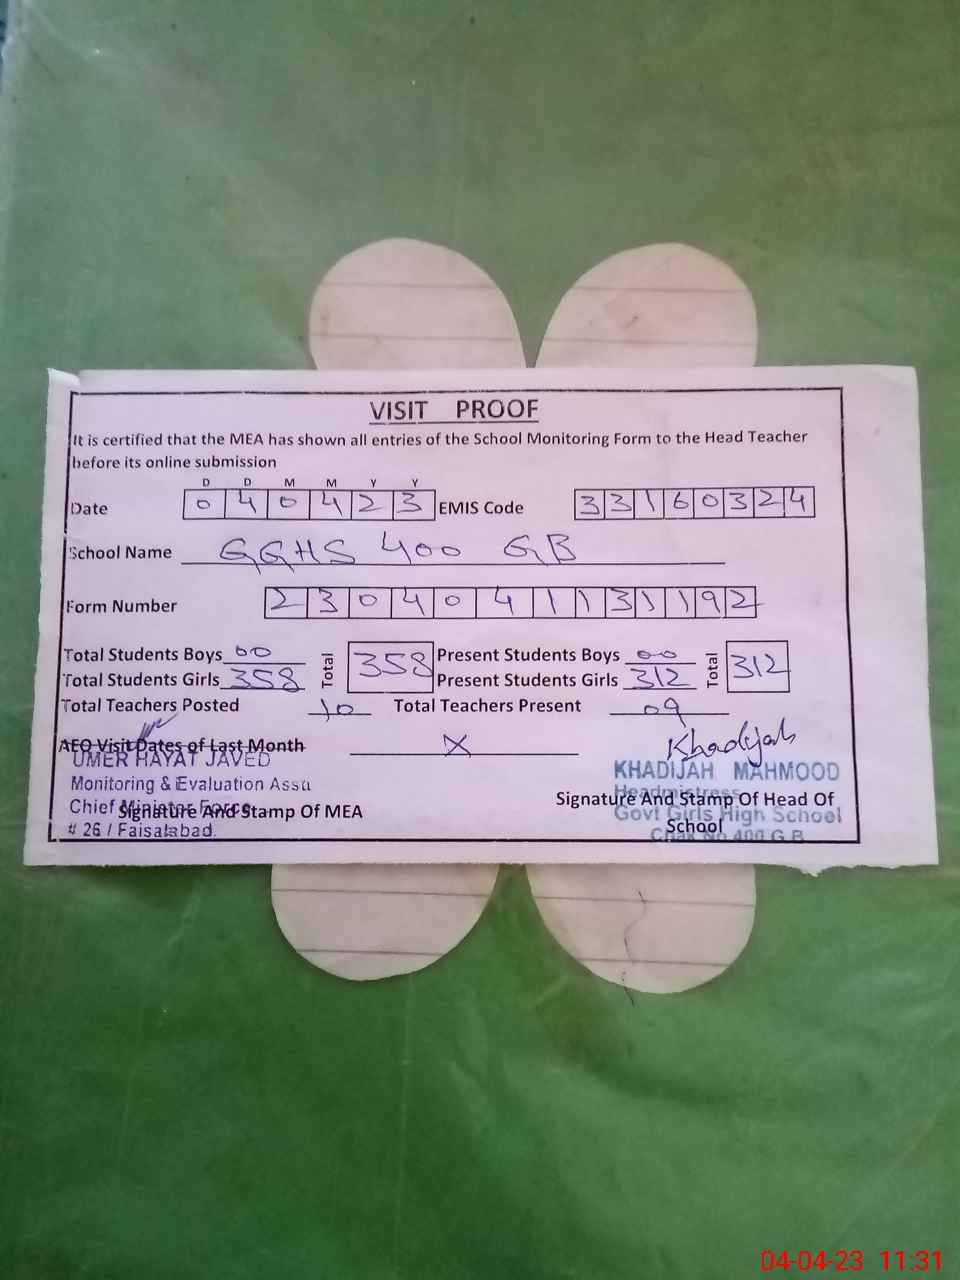 VISIT PROOF
It is certified that the MEA has shown all entries of the School Monitoring Form to the Head Teacher
before its online submission
D D M M Y Y
Date 0 4 0 4 2 3 EMIS Code 3 3 1 6 0 3 2 4
School Name GGHS 400 GB
Form Number 2 3 0 4 0 4 1 1 3 1 1 9 2
Total Students Boys 00 Total 358 Present Students Boys 00 Total 312
Total Students Girls 358 Present Students Girls 312
Total Teachers Posted 10 Total Teachers Present 09
AEO Visit Dates of Last Month X Khadijah
UMER HAYAT JAVED KHADIJAH MAHMOOD
Monitoring & Evaluation Assa Headmistress
Chief Minister Force Signature And Stamp Of MEA Signature And Stamp Of Head Of
Govt Girls High School
# 26 / Faisalabad. School
Chak No 400 G.B
04-04-23 11:31